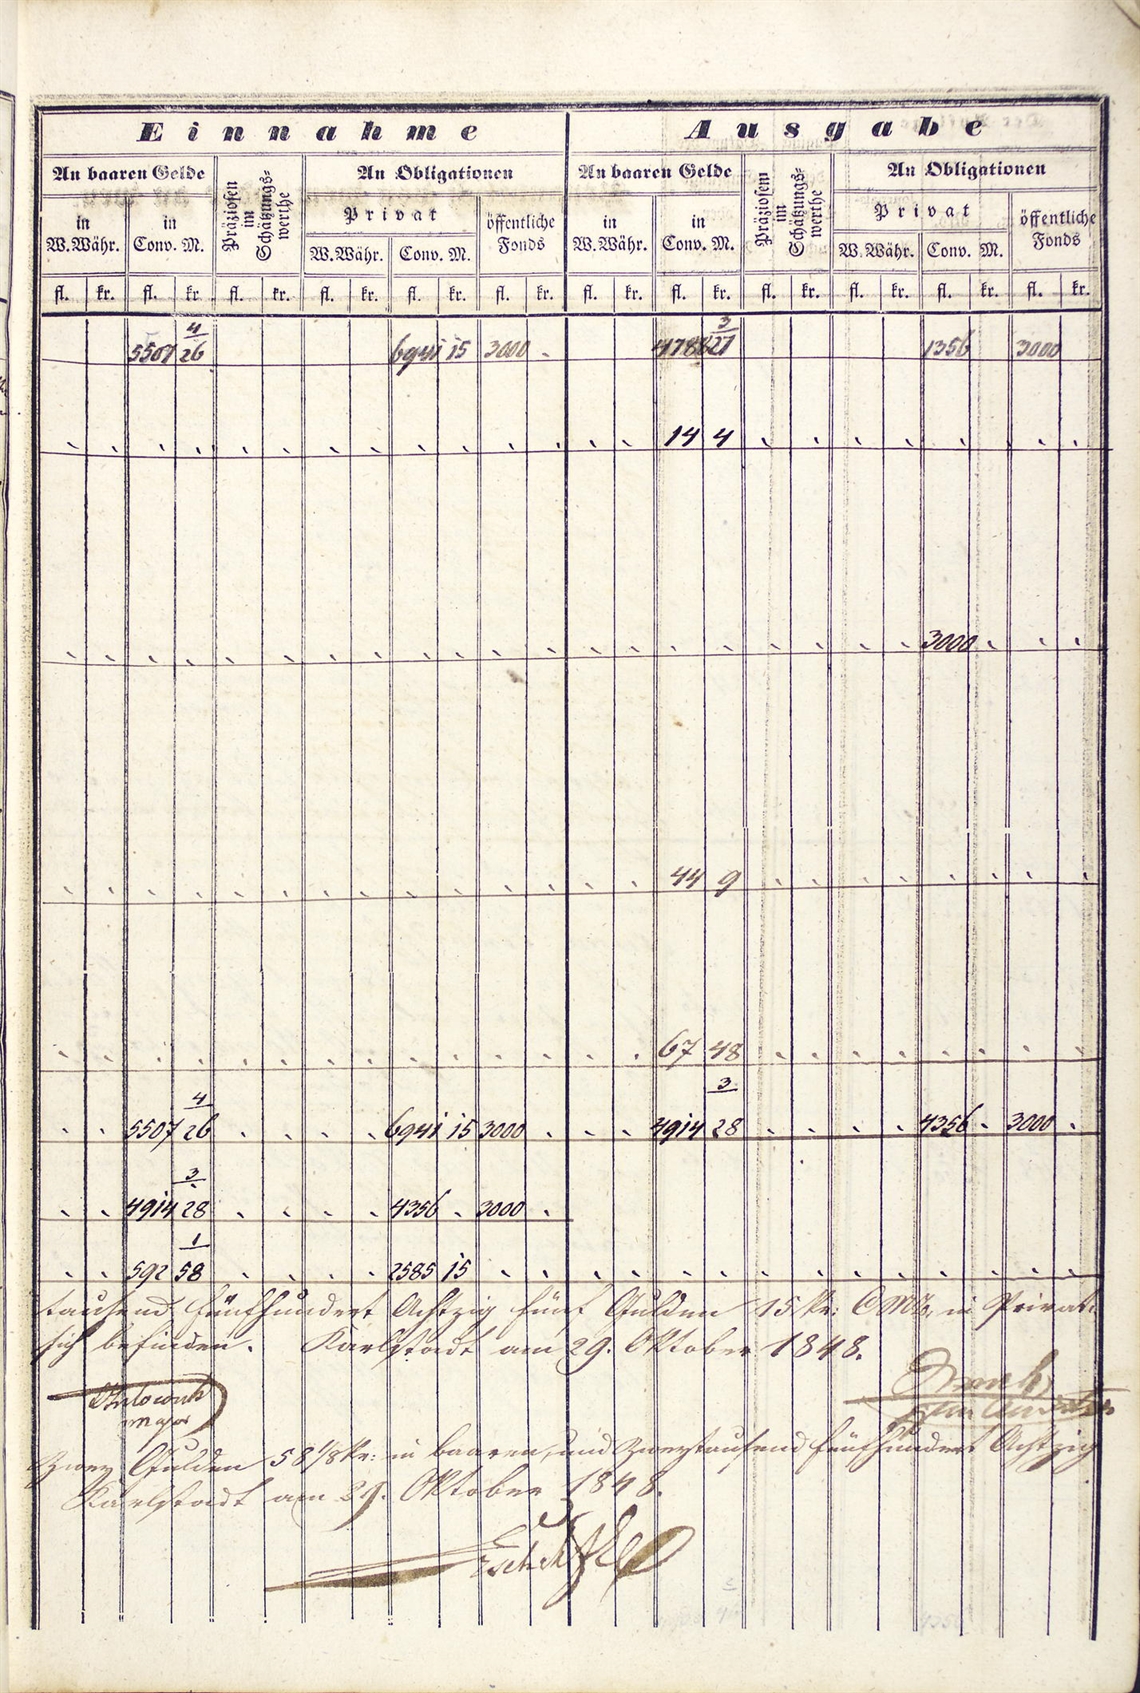 Einnahme Ausgabe
An baaren Gelde Präziosen im Schätzungs-werthe An Obligationen An baaren Gelde Präziosem im Schätzungs-werthe An Obligationen
in W.Währ. in Conv. M. Privat öffentliche Fonds in W.Währ. in Conv. M. Privat öffentliche Fonds
W.Währ. Conv. M. W.Währ. Conv. M.
fl. kr. fl. kr. fl. kr. fl. kr. fl. kr. fl. kr. fl. kr. fl. kr. fl. kr. fl. kr. fl. kr. fl. kr.
4 3
5507 26 6941 15 3000 - 4788 27 1356 3000
14 4
3000
44 9
67 48
4 3
5507 26 6941 15 3000 4914 28 4356 3000
3
4914 28 4356 3000
1
592 58 2585 15
tausend fünfhundert Achtzig fünf Gulden 15 kr: in Privat
sich befinden. Karlstadt am 29. Oktober 1848.
Major
Zwey Gulden 58 1/8 kr: in baaren, und Zweytausend fünfhundert Achtzig
Karlstadt am 29. Oktober 1848.